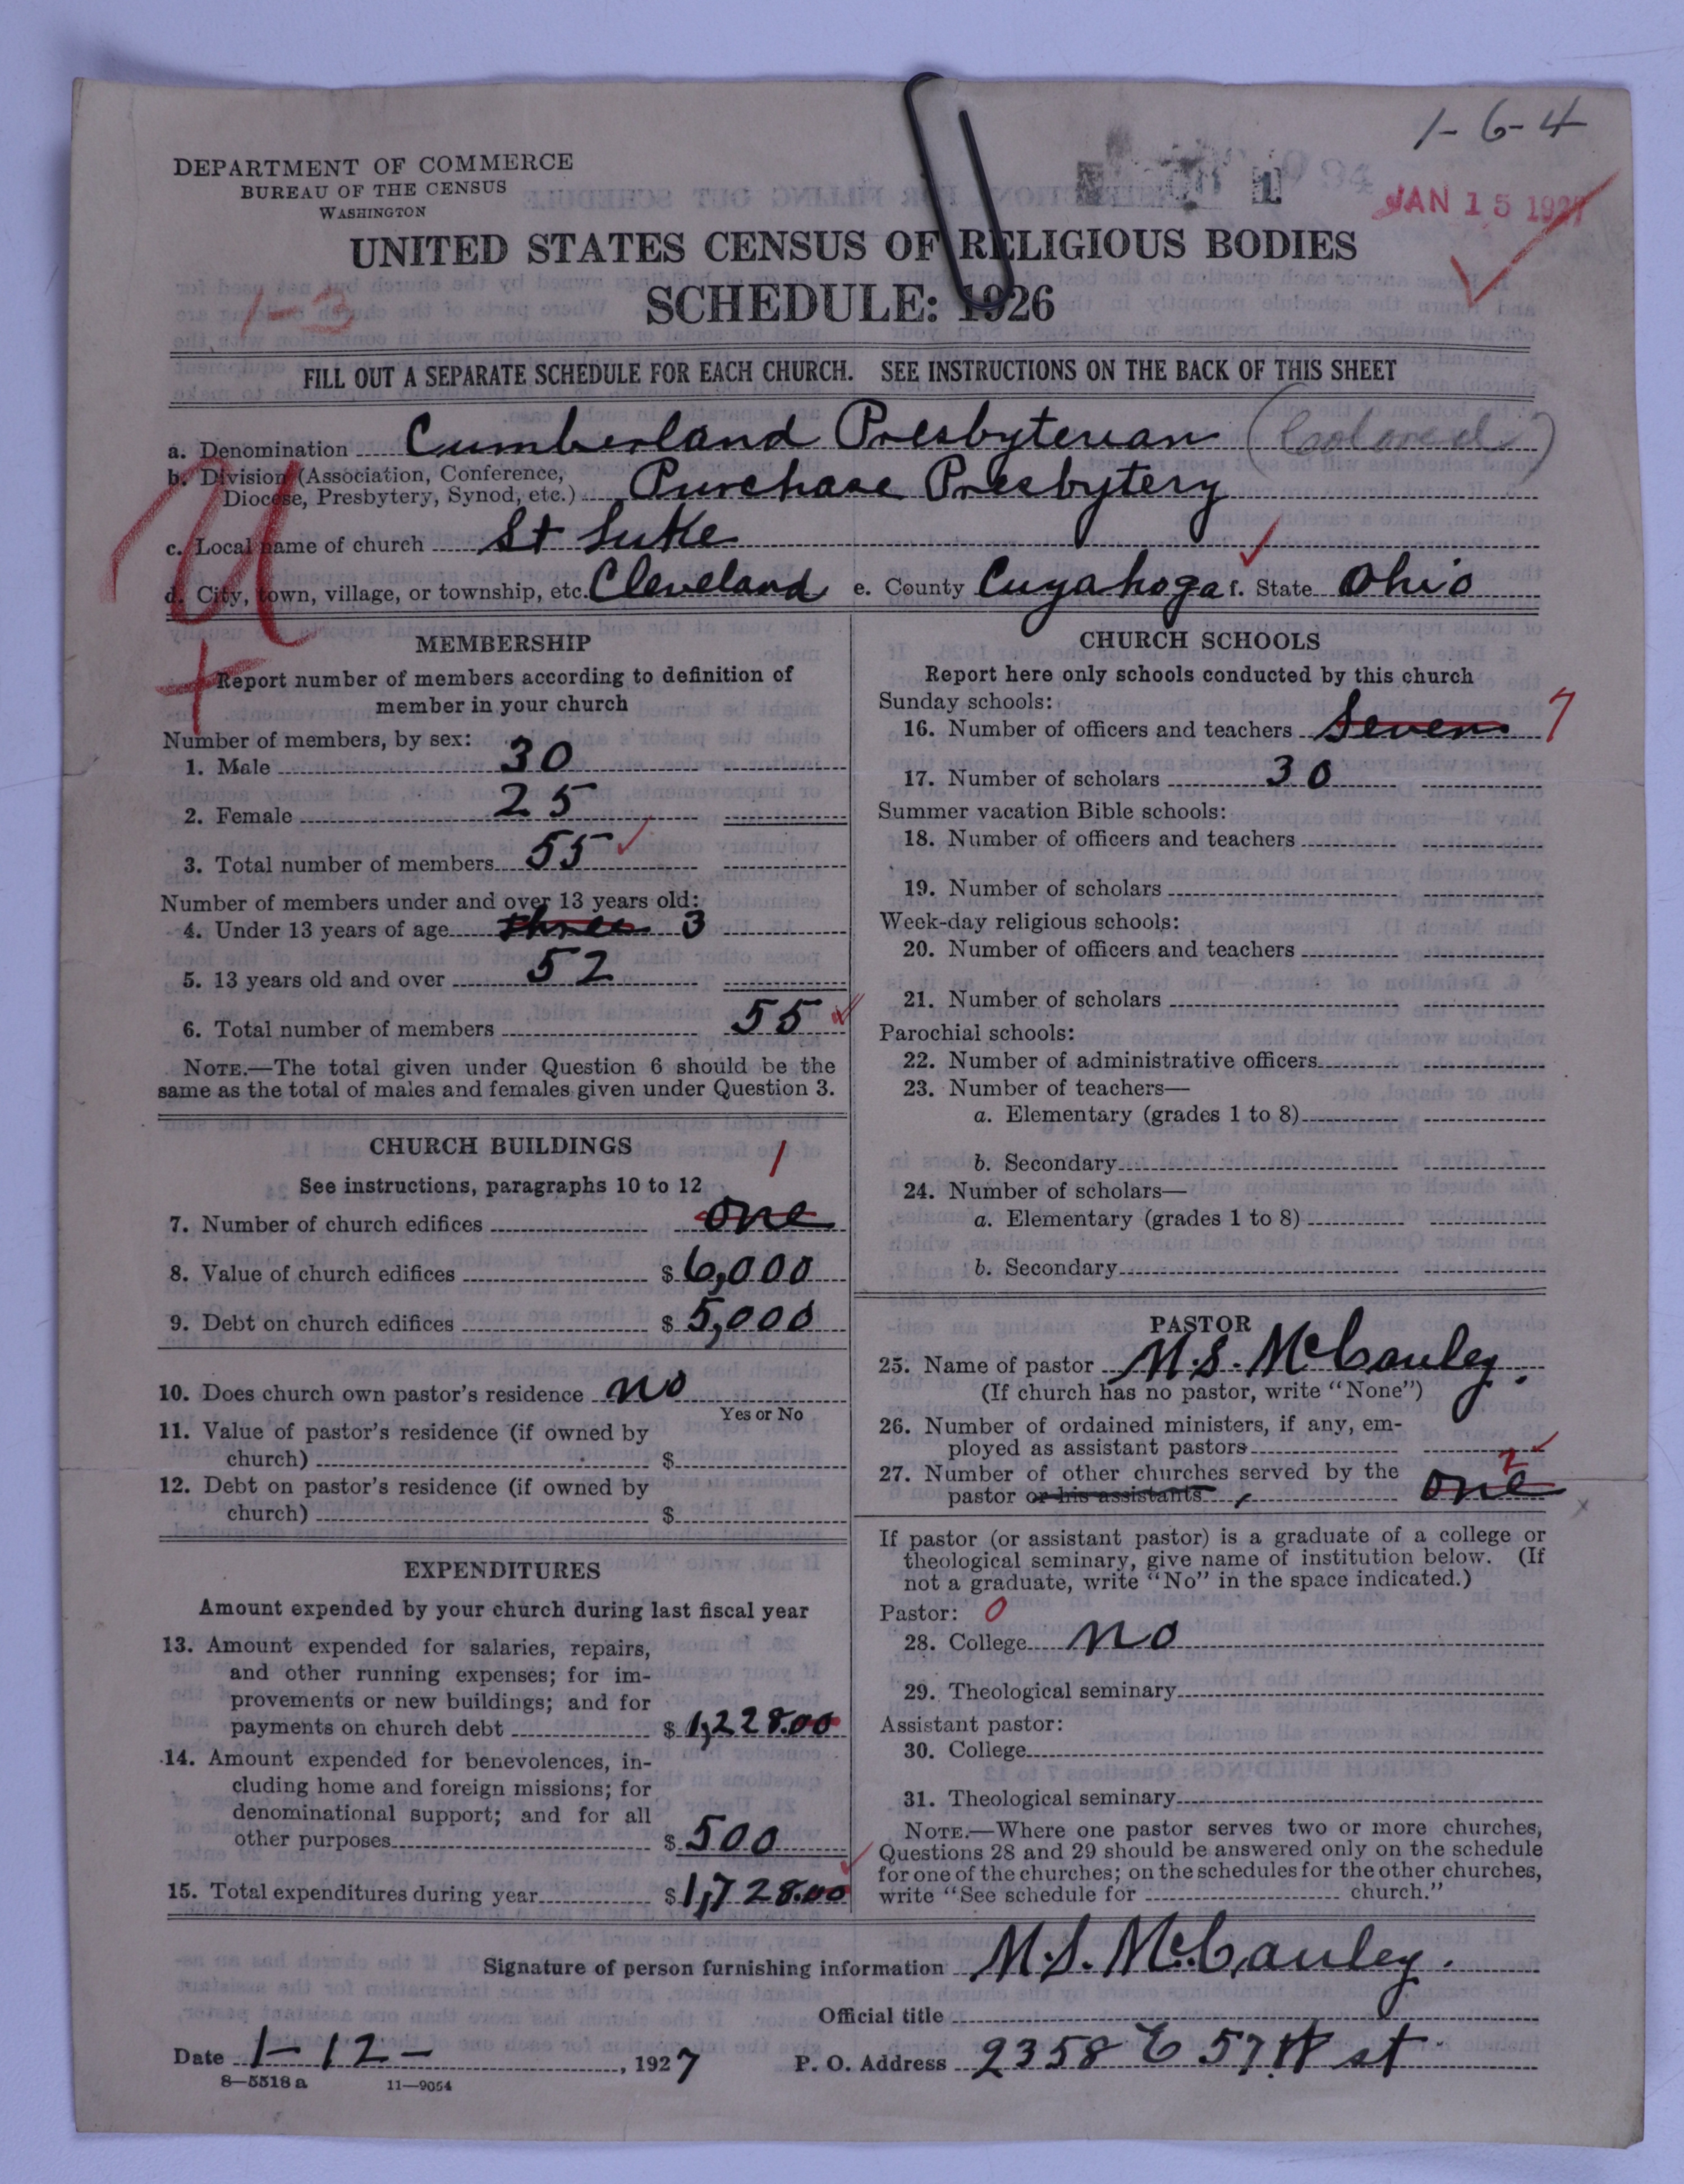 1-6-4
DEPARTMENT OF COMMERCE
BUREAU OF THE CENSUS
WASHINGTON
JAN 15 1927
UNITED STATES CENSUS OF RELIGIOUS BODIES
SCHEDULE: 1926
1-3
FILL OUT A SEPARATE SCHEDULE FOR EACH CHURCH. SEE INSTRUCTIONS ON THE BACK OF THIS SHEET
a. Denomination Cumberland Presbyterian (Colored)
b. Division (Association, Conference,
Diocese, Presbytery, Synod, etc.) Purchase Presbytery
c. Local name of church St Luke
d. City, town, village, or township, etc. Cleveland e. County Cuyahoga f. State Ohio
MEMBERSHIP
Report number of members according to definition of
member in your church
Number of members, by sex:
1. Male 30
2. Female 25
3. Total number of members 55
Number of members under and over 13 years old:
4. Under 13 years of age three 3
5. 13 years old and over 52
6. Total number of members 55
NOTE.—The total given under Question 6 should be the
same as the total of males and females given under Question 3.
CHURCH BUILDINGS
See instructions, paragraphs 10 to 12
1
7. Number of church edifices one
8. Value of church edifices $ 6,000
9. Debt on church edifices $ 5,000
10. Does church own pastor's residence no
Yes or No
11. Value of pastor's residence (if owned by
church) $
12. Debt on pastor's residence (if owned by
church) $
EXPENDITURES
Amount expended by your church during last fiscal year
13. Amount expended for salaries, repairs,
and other running expenses; for im-
provements or new buildings; and for
payments on church debt $ 1,228.00
14. Amount expended for benevolences, in-
cluding home and foreign missions; for
denominational support; and for all
other purposes $ 500
15. Total expenditures during year $ 1,728.00
CHURCH SCHOOLS
Report here only schools conducted by this church
Sunday schools:
16. Number of officers and teachers Seven 7
17. Number of scholars 30
Summer vacation Bible schools:
18. Number of officers and teachers
19. Number of scholars
Week-day religious schools:
20. Number of officers and teachers
21. Number of scholars
Parochial schools:
22. Number of administrative officers
23. Number of teachers—
a. Elementary (grades 1 to 8)
b. Secondary
24. Number of scholars—
a. Elementary (grades 1 to 8)
b. Secondary
PASTOR
25. Name of pastor M.S. McCauley.
(If church has no pastor, write "None")
26. Number of ordained ministers, if any, em-
ployed as assistant pastors
27. Number of other churches served by the
pastor or his assistants one 2
If pastor (or assistant pastor) is a graduate of a college or
theological seminary, give name of institution below. (If
not a graduate, write "No" in the space indicated.)
Pastor: 0
28. College no
29. Theological seminary
Assistant pastor:
30. College
31. Theological seminary
NOTE.—Where one pastor serves two or more churches,
Questions 28 and 29 should be answered only on the schedule
for one of the churches; on the schedules for the other churches,
write "See schedule for church."
Signature of person furnishing information M.S. McCauley.
Official title
Date 1-12-, 1927 P. O. Address 2358 E 57th st
8—5518 a 11—9054